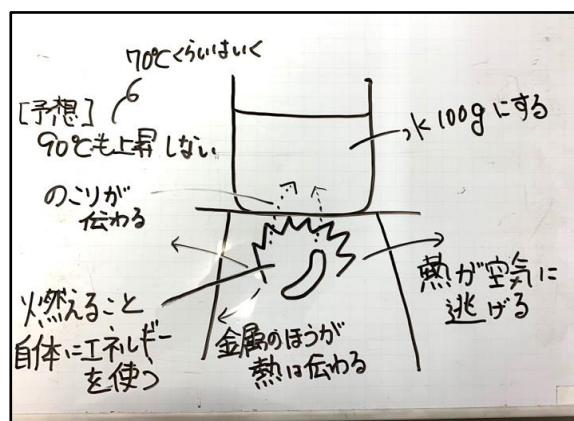 70℃くらいはいく
[予想]
90℃も上昇しない
水100gにする
のこりが
伝わる
熱が空気に
逃げる
燃えること
自体にエネルギー
を使う
金属のほうが
熱は伝わる